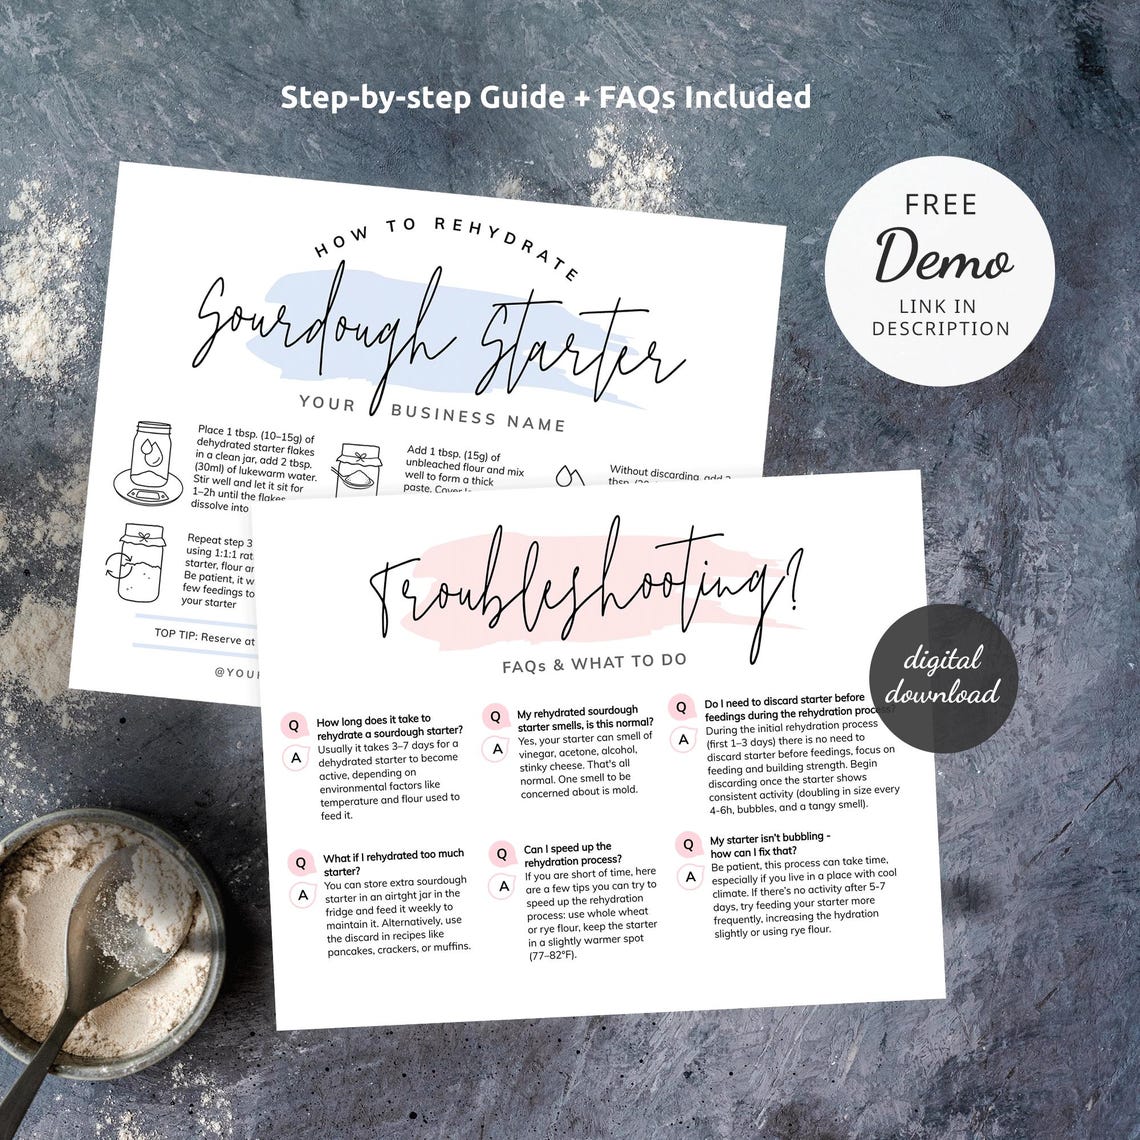 Step-by-step Guide + FAQs Included
FREE
Demo
LINK IN
DESCRIPTION
HOW TO REHYDRATE
Sourdough Starter
YOUR BUSINESS NAME
Place 1 tbsp. (10–15g) of
dehydrated starter flakes
in a clean jar, add 2 tbsp.
(30ml) of lukewarm water.
Stir well and let it sit for
1–2h until the flakes
dissolve into
Add 1 tbsp. (15g) of
unbleached flour and mix
well to form a thick
paste. Cover
Without discarding, add 2
Repeat step 3
using 1:1:1
starter, flour
Be patient, it
few feedings to
your starter
TOP TIP: Reserve at
digital
download
Troubleshooting?
FAQs & WHAT TO DO
Q
How long does it take to
rehydrate a sourdough starter?
A
Usually it takes 3–7 days for a
dehydrated starter to become
active, depending on
environmental factors like
temperature and flour used to
feed it.
Q
My rehydrated sourdough
starter smells, is this normal?
A
Yes, your starter can smell of
vinegar, acetone, alcohol,
stinky cheese. That's all
normal. One smell to be
concerned about is mold.
Q
Do I need to discard starter before
feedings during the rehydration process?
A
During the initial rehydration process
(first 1–3 days) there is no need to
discard starter before feedings, focus on
feeding and building strength. Begin
discarding once the starter shows
consistent activity (doubling in size every
4-6h, bubbles, and a tangy smell).
Q
What if I rehydrated too much
starter?
A
You can store extra sourdough
starter in an airtght jar in the
fridge and feed it weekly to
maintain it. Alternatively, use
the discard in recipes like
pancakes, crackers, or muffins.
Q
Can I speed up the
rehydration process?
A
If you are short of time, here
are a few tips you can try to
speed up the rehydration
process: use whole wheat
or rye flour, keep the starter
in a slightly warmer spot
(77–82°F).
Q
My starter isn't bubbling -
how can I fix that?
A
Be patient, this process can take time,
especially if you live in a place with cool
climate. If there's no activity after 5-7
days, try feeding your starter more
frequently, increasing the hydration
slightly or using rye flour.